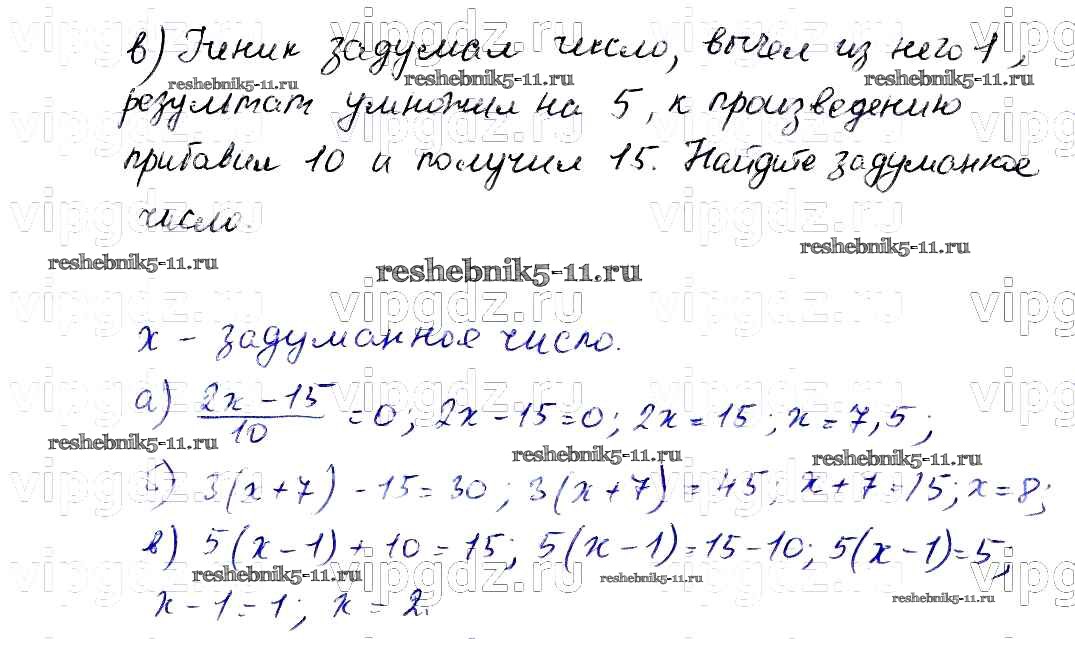 в) Ученик задумал число, вычел из него 1,
результат умножил на 5, к произведению
прибавил 10 и получил 15. Найдите задуманное
число.
reshebnik5-11.ru
x - задуманное число.
а) (2x - 15)/10 = 0; 2x - 15 = 0; 2x = 15; x = 7,5;
б) 3(x + 7) - 15 = 30; 3(x + 7) = 45; x + 7 = 15; x = 8;
в) 5(x - 1) + 10 = 15; 5(x - 1) = 15 - 10; 5(x - 1) = 5;
x - 1 = 1; x = 2.
vipgdz.ru